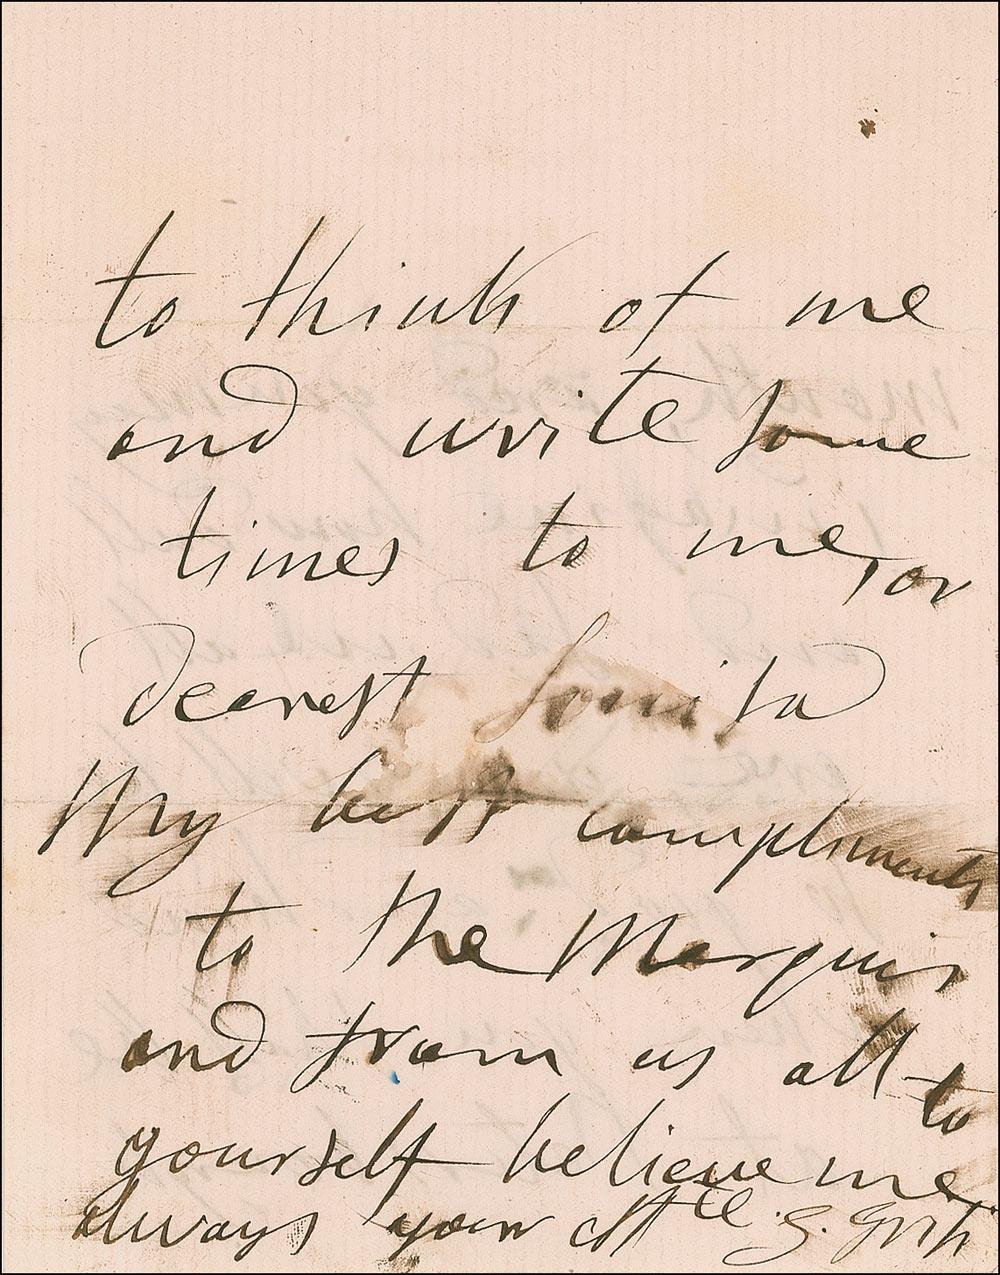 to think of me
and write some
times to me, or
dearest Louisa
My best compliments
to the Marquis
and from us all to
yourself believe me
always your afft